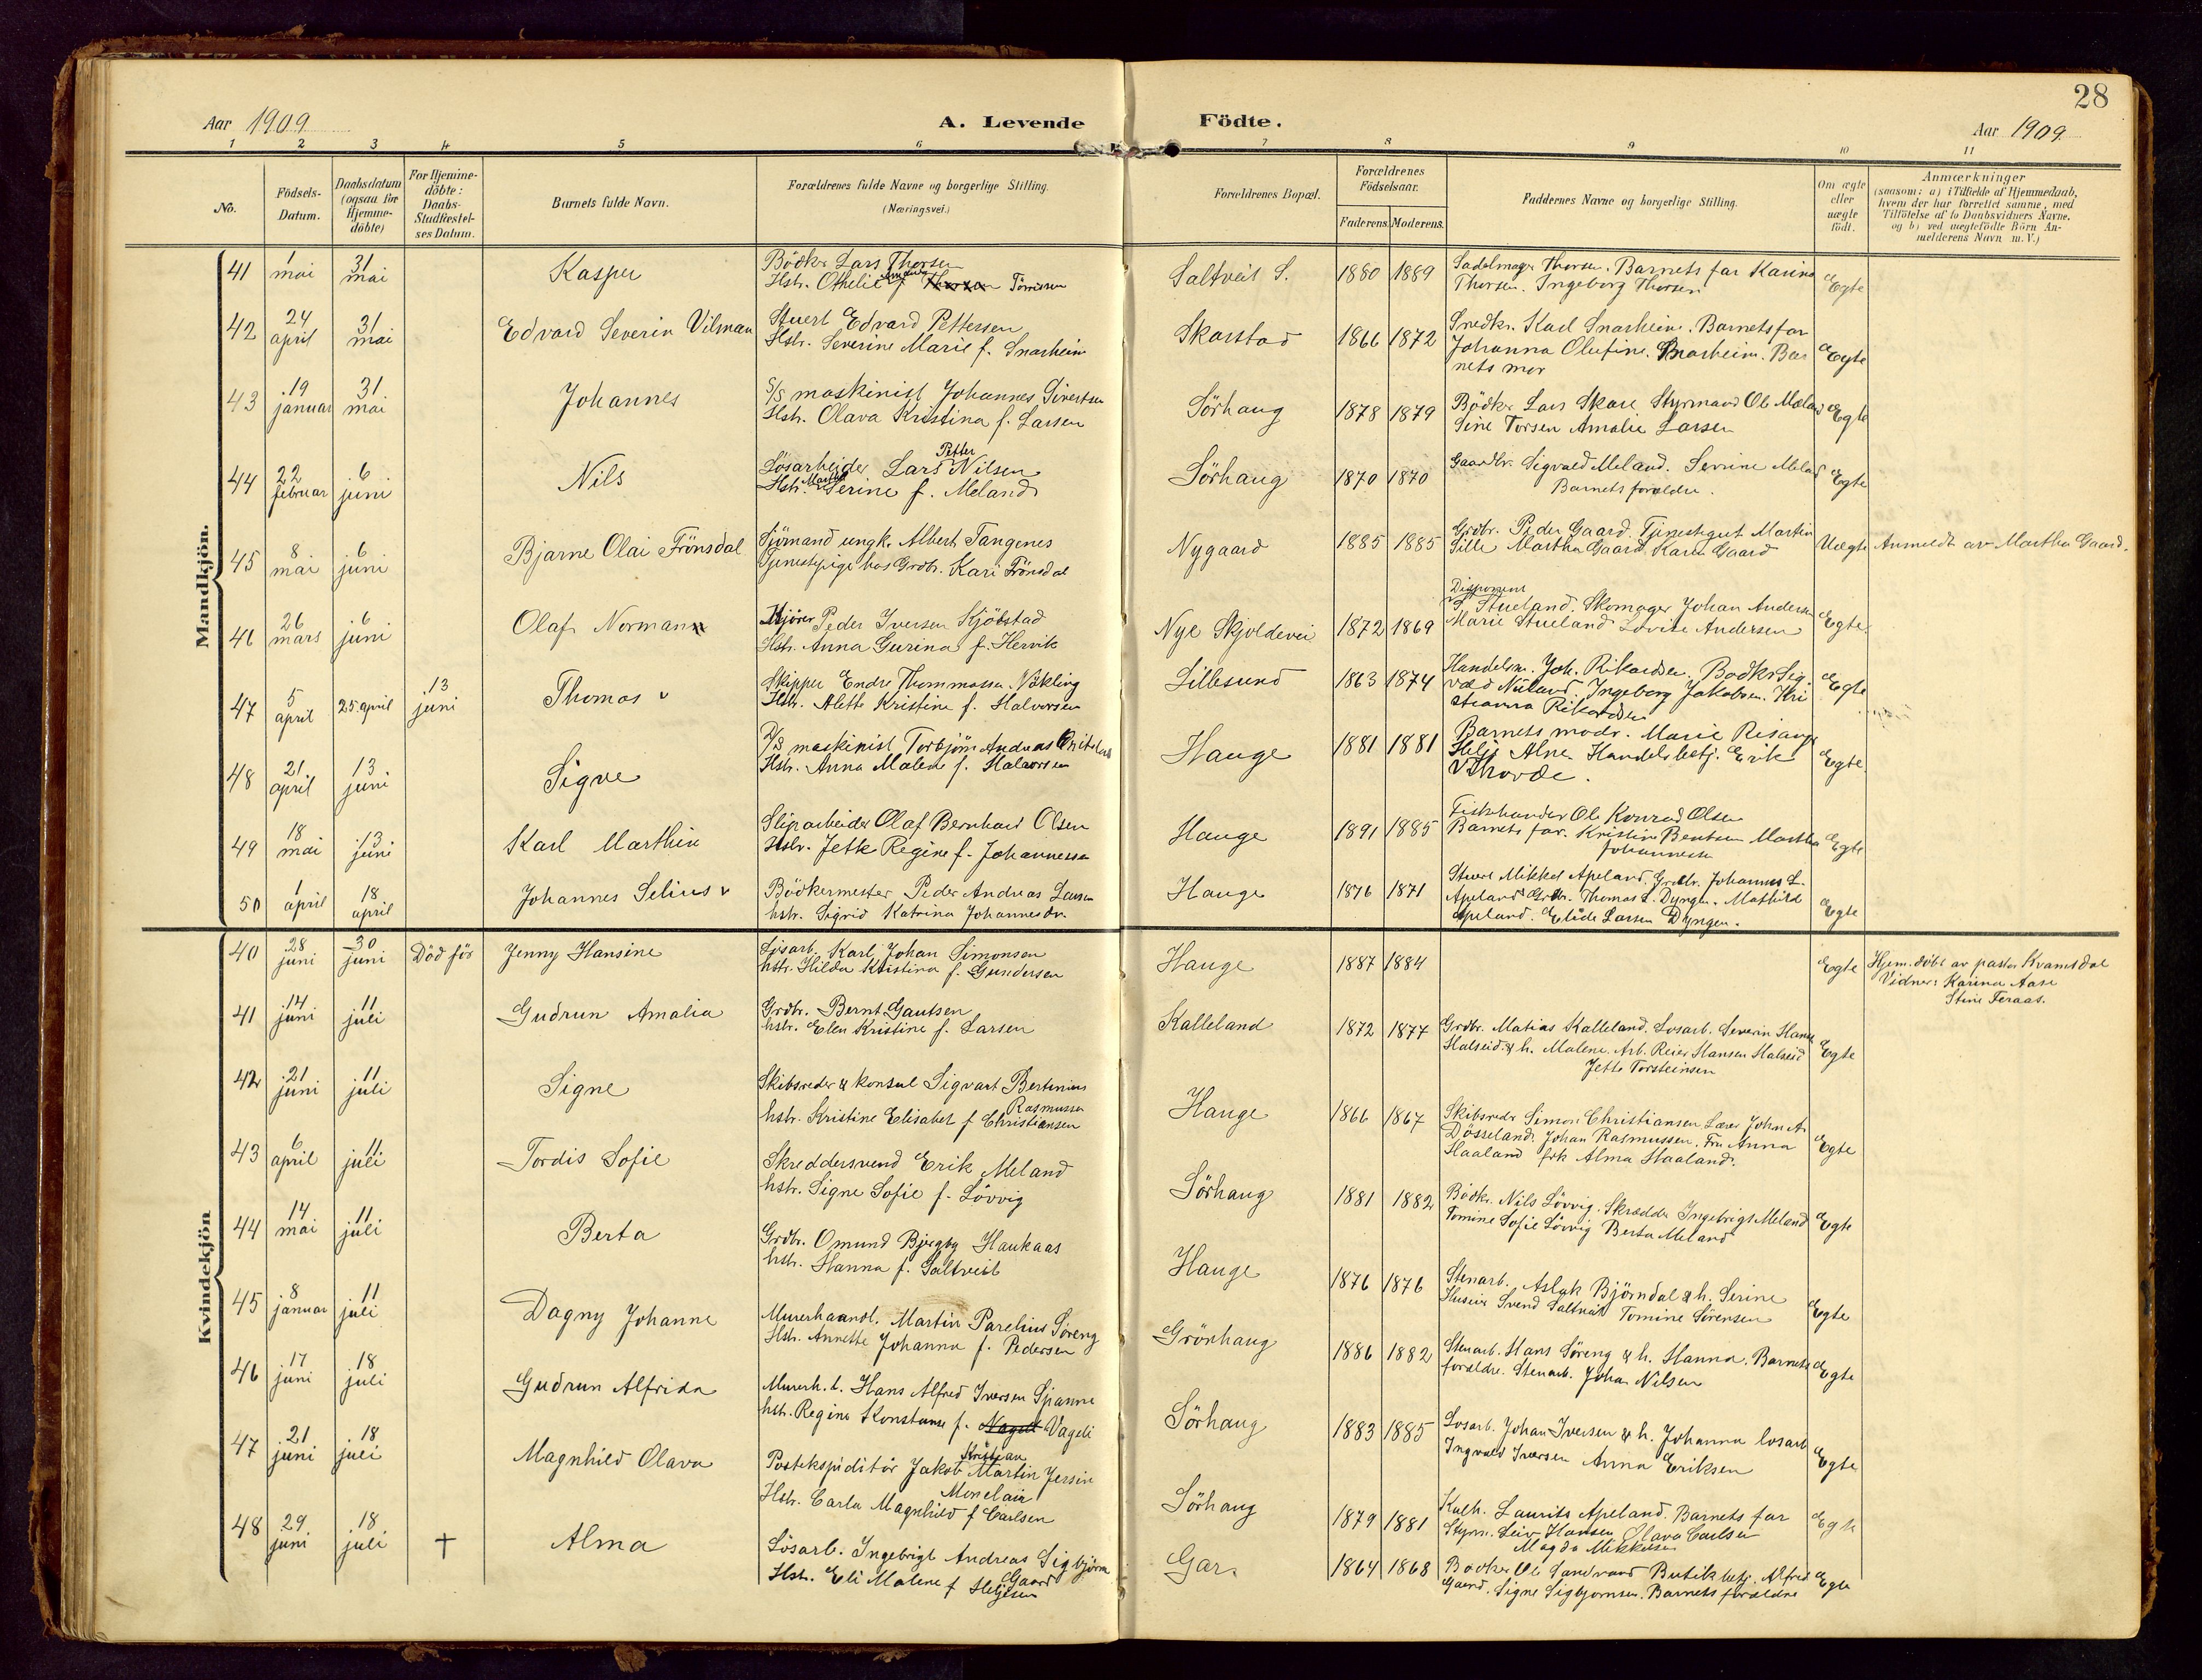 28
Aar 1909
A. Levende Födte.
Aar 1909.
1 2 3 4 5 6 7 8 9 10 11
No.
Födsels-
Datum.
Daabsdatum
(ogsaa for
Hjemme-
döbte)
For Hjemme-
döbte:
Daabs-
Stadfæstel-
ses Datum.
Barnets fulde Navn.
Forældrenes fulde Navne og borgerlige Stilling.
(Næringsvei.)
Forældrenes Bopæl.
Forældrenes
Födselsaar.
Faderens. Moderens.
Faddernes Navne og borgerlige Stilling.
Om ægte
eller
uægte
födt.
Anmærkninger
(saasom: a) i Tilfælde af Hjemmedaab,
hvem der har forrettet samme, med
Tilföielse af to Daabsvidners Navne.
og b) ved uægtefödte Börn An-
melderens Navn m. V.)
Mandkjön.
41 1 mai 31 mai Kasper
Bödker Lars Thorsen
Hstr. Othelie f. Tönnesen
Saltveit S. 1880 1889
Sadelmager Thorsen. Barnets far Karina
Thorsen. Ingeborg Thorsen
Egte
42 24 april 31 mai Edvard Severin Vilman
Stuert Edvard Pettersen
Hstr. Severine Marie f. Snarheim
Skarstad 1866 1872
Snedkr. Karl Snarheim. Barnets far
Johanna Olufine Snarheim. Bar
nets mor
Egte
43 19 januar 31 mai Johannes
S/S maskinist Johannes Sivertsen
Hstr. Olava Kristina f. Larsen
Sörhaug 1878 1879
Bödkr Lars Skare Styrmand Ole Mæland
Sine Torsen Amalie Larsen
Egte
44 22 februar 6 juni Nils
Lösarbeider Lars Petter Nilsen
Hstr. Martha Serine f. Meland
Sörhaug 1870 1870
Gaardbr. Sigvald Meland. Serine Meland
Barnets forældre.
Egte
45 8 mai 6 juni Bjarne Olai Frönsdal
Sjömand ungk. Albert Tangenes
Tjenestepige hos Grdbr. Kari Frönsdal
Nygaard 1885 1885
Grdbr. Peder Gaard. Tjenestegut Martin
Gille Martha Gaard. Karen Gaard
Uægte Anmeldt av Martha Gaard.
46 26 mars 6 juni Olaf Norman
Peder Iversen Kjölstad
Hstr. Anna Gurina f. Hervik
Nye Skjoldevei 1872 1869
Disponent
Stueland. Skomager Johan Andersen
Marie Stueland Lovise Andersen
Egte.
47 5 april 25 april 13 juni Thomas v
Skipper Endre Thommassen Vikling
Hstr. Alette Kristine f. Halvorsen
Lillesund 1863 1874
Handelsm. Joh. Rikardsen. Bödkr Sig-
vald Nieland. Ingeborg Jakobsen. Kri
stianna Rikardsen
Egte
48 21 april 13 juni Sigve
D/S maskinist Torbjörn Andreas
Hstr. Anna Malene f. Halvorsen
Hauge 1881 1881
Barnets modr. Marie Risange
Helje Alne. Handelsbetj. Erik
Vihovde.
Egte.
49 18 mai 13 juni Karl Marthin
Sliparbeider Olaf Bernhard Olsen
Hstr. Jette Regine f. Johannessen
Hauge 1891 1885
Fiskhandler Ole Konrad Olsen
Barnets far. Kristine Bentsen Martha
Johannessen
Egte
50 1 april 18 april Johannes Selius v
Bödkermester Peder Andreas Larsen
hstr. Sigrid Katrina Johannesdr.
Hauge 1876 1871
Stuert Mikkel Apeland. Grdbr. Johannes L.
Apeland Grdbr. Thomas L. Dyngen. Mathild
Apeland. Elide Larsen Dyngen.
Egte
Kvindekjön
40 28 juni 30 juni Död för Jenny Hansine
Lösarb. Karl Johan Simonsen
hstr. Hilda Kristina f. Gundersen
Hauge 1887 1884
Egte Hjem.döbt av pastor Kvamsdal
Vidner: Karina Aase
Stine Feraas.
41 14 juni 11 juli Gudrun Amalia
Grdbr. Bernt Gautsen
hstr. Elen Kristine f. Larsen
Kalleland 1872 1877
Grdbr. Matias Kalleland. Losarb. Severin Hansen
Halseid & h. Malene. Arb. Reier Hansen Halseid
Jette Torsteinsen
Egte
42 21 juni 11 juli Signe
Skibsreder & konsul Sigvart Bertinius
Rasmussen
hstr. Kristine Elisabet f Christiansen
Hauge 1866 1867
Skibsreder Simon Christiansen Lærer John A.
Dösseland. Johan Rasmussen. Fru Anna
Haaland frk Alma Haaland.
Egte
43 6 april 11 juli Tordis Sofie
Skreddersvend Erik Meland
hstr. Signe Sofie f. Lövvig
Sörhaug 1881 1882
Bödkr. Nils Lövvig. Skrædder Ingebrigt Meland
Tomine Sofie Lövvig Berta Meland
Egte
44 14 mai 11 juli Berta
Grdbr. Omund Bjergby Haukaas
hstr. Hanna f. Saltveit
Hauge 1876 1876
Stenarb. Aslak Björndal & h. Serine
Huseier Svend Saltveit Tomine Sörensen
Egte
45 8 januar 11 juli Dagny Johanne
Murerhaandl. Martin Parelius Söreng
Hstr. Annette Johanna f. Pedersen
Grönhaug 1886 1882
Stenarb. Hans Söreng & h. Hanna. Barnets
forældre. Stenarb. Johan Nilsen
Egte
46 17 juni 18 juli Gudrun Alfrida
Murerh.l. Hans Alfred Iversen Spanne
hstr. Regine Konstanse f. Vageli
Sörhaug 1883 1885
Losarb. Johan Iversen & h. Johanna losarb
Ingvald Iversen Anna Eriksen
Egte
47 21 juni 18 juli Magnhild Olava
Postekspeditör Jakob Kristian Martin Jersin
Monclair
Hstr. Carla Magnhild f Carlsen
Sörhaug 1879 1881
Laurits Apeland. Barnets far
Styrm. Leiv Hansen Olava Carlsen
Magda Mikkelsen
Egte
48 29 juni 18 juli + Alma
Lösarb. Ingebrigt Andreas Sigbjörn
Gaard
Hstr. Eli Malene f Heljesen
Gar. 1864 1868
Bödker Ole Sandvand Butikbetj. Alfred
Gaard. Signe Sigbjornsen. Barnets forældre
Egte